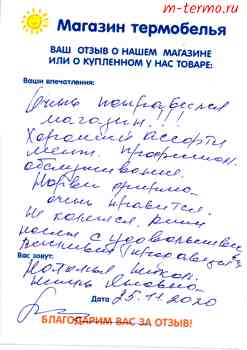 m-termo.ru
Магазин термобелья
ВАШ ОТЗЫВ О НАШЕМ МАГАЗИНЕ
ИЛИ О КУПЛЕННОМ У НАС ТОВАРЕ:
Ваши впечатления:
Очень понравился
магазин!!!
Хороший ассорти
мент. Професион.
обслуживание.
очень нравится.
Не колется,
носим с удовольствием
Вас зовут:
Наталья
Дата 25.11.2020
БЛАГОДАРИМ ВАС ЗА ОТЗЫВ!